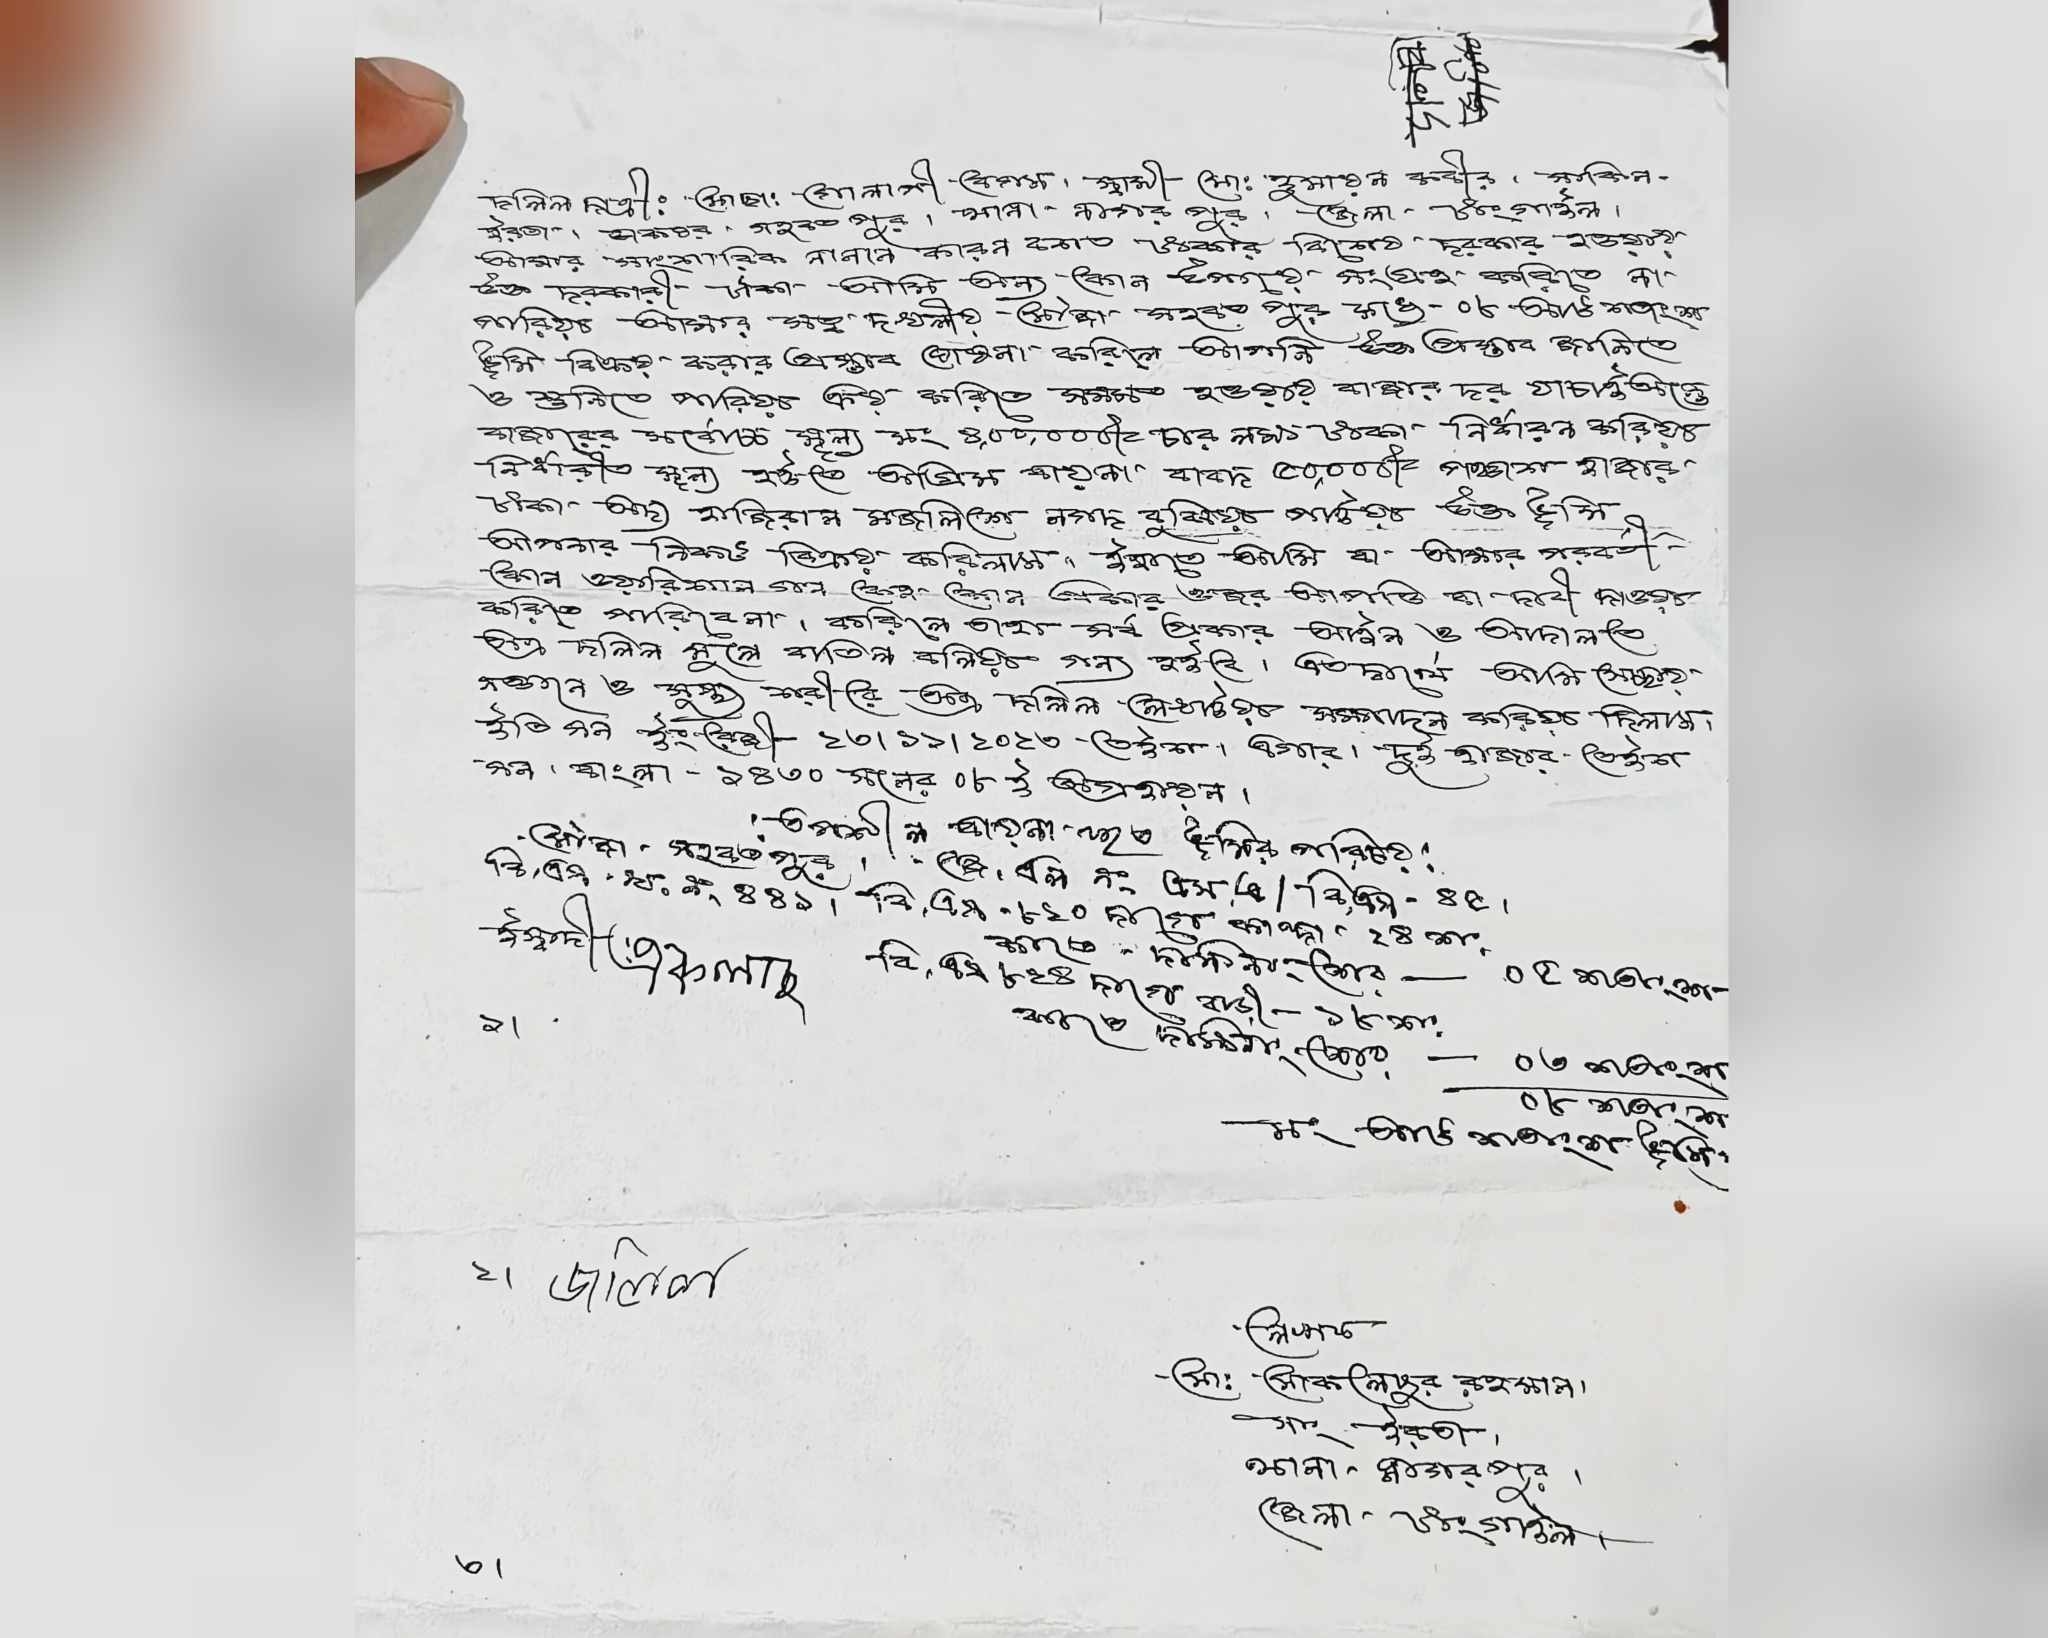 দলিল দাত্রী: মোছা: গোলাপী বেগম। স্বামী- মো: হুমায়ন কবীর। সাকিন-
ইরতা। ডাকঘর- সহবতপুর। থানা- নাগরপুর। জেলা- টাংগাইল।
আমার সাংসারিক নানান কারন বসত টাকার বিশেষ দরকার হওয়ায়
উক্ত দরকারী টাকা আমি অন্য কোন উপায়ে সংগ্রহ করিতে না
পারিয়া আমার সত্ব দখলীয় মৌজা সহবতপুর মধ্যে- ০৮ আট শতাংশ
ভূমি বিক্রয় করার প্রস্তাব ঘোষনা করিলে আপনি উক্ত প্রস্তাব জানিতে
ও শুনিতে পারিয়া ক্রয় করিতে সম্মত হওয়ায় বাজার দর যাচাই অন্তে
বাজারের সর্বোচ্চ মূল্য মং ৪,০০,০০০/= চার লক্ষ টাকা নির্ধারন করিয়া
নির্ধারীত মূল্য হইতে অগ্রিম বায়না বাবদ ৫০,০০০/= পঞ্চাশ হাজার
টাকা অদ্য হাজিরান মজলিশে নগদ বুঝিয়া পাইয়া উক্ত ভূমি
আপনার নিকট বিক্রয় করিলাম। ইহাতে আমি বা আমার পরবর্তী
কোন ওয়ারিশান গন কেহ কোন প্রকার ওজর আপত্তি বা দাবী দাওয়া
করিতে পারিবেনা। করিলে তাহা সর্ব প্রকার আইন ও আদালতে
অত্র দলিল মূলে বাতিল বলিয়া গন্য হইবে। এতদ্বার্থে আমি সেচ্ছায়
সজ্ঞানে ও সুস্থ্য শরীরে অত্র দলিল লেখাইয়া সম্পাদন করিয়া দিলাম।
ইতি সন ইংরেজী- ২৩।১১।২০২৩ তেইশ। এগার। দুই হাজার তেইশ
সন। বাংলা- ১৪৩০ সনের ০৮ ই অগ্রহায়ন।
: তপশীল বায়না কৃত ভূমির পরিচয়:
মৌজা- সহবতপুর। জে, এল নং এস,এ/ বি,এস- ৪৫।
বি,এস- খ: নং ৪৪১। বি,এস- ৮২০ দাগে কান্দা- ২৪ শা:
কাতে দক্ষিনাংশে — ০৫ শতাংশ
ইস্বাদী: বি,এস ৮২৪ দাগে বাড়ী- ১৮ শা:
১। কাতে দক্ষিনাংশে — ০৩ শতাংশ
০৮ শতাংশ
মং আট শতাংশ ভূমি
২। জলিল
লেখক
মো: মোকলেছুর রহমান।
সাং ইরতা।
থানা- নাগরপুর।
জেলা- টাংগাইল।
৩।